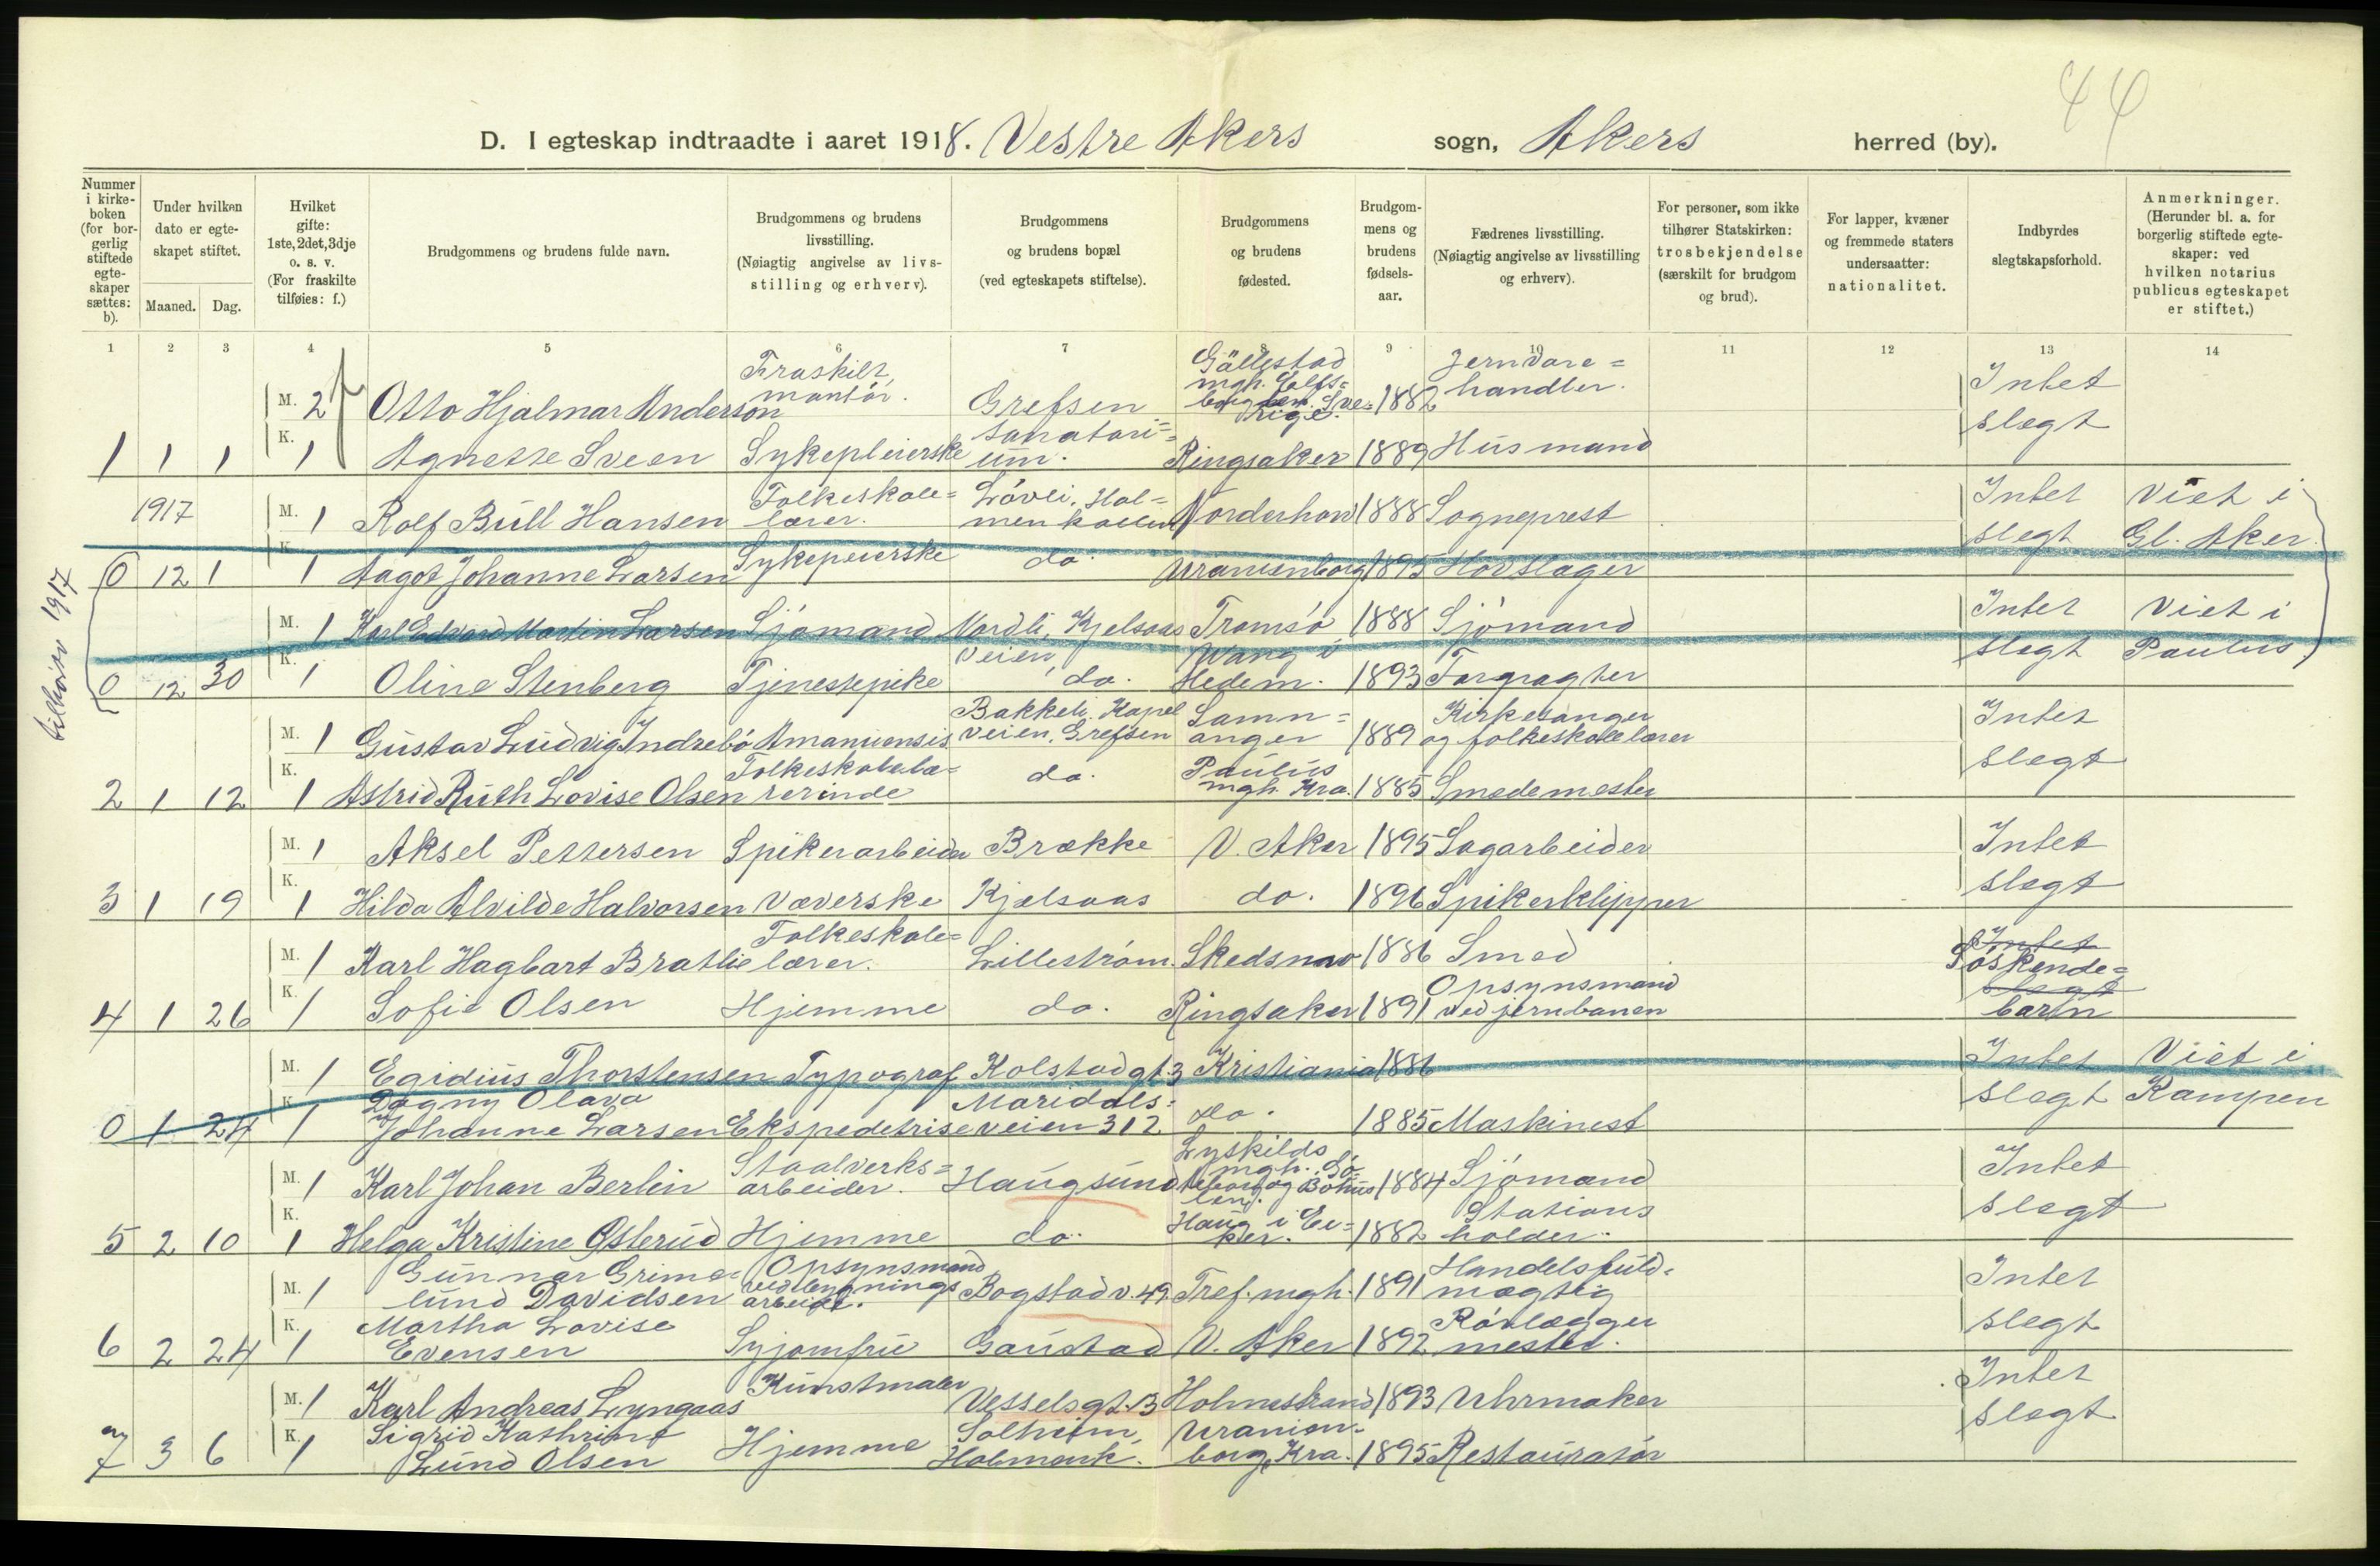 44
D. I egteskap indtraadte i aaret 1918. Vestre Akers sogn, Akers herred (by).
Nummer i kirke-boken (for bor-gerlig stiftede egte-skaper sættes: b).
Under hvilken dato er egte-skapet stiftet.
Maaned. Dag.
Hvilket gifte: 1ste, 2det, 3dje o. s. v. (For fraskilte tilføies: f.)
Brudgommens og brudens fulde navn.
Brudgommens og brudens livsstilling. (Nøiagtig angivelse av livs-stilling og erhverv).
Brudgommens og brudens bopæl (ved egteskapets stiftelse).
Brudgommens og brudens fødested.
Brudgom-mens og brudens fødsels-aar.
Fædrenes livsstilling. (Nøiagtig angivelse av livsstilling og erhverv).
For personer, som ikke tilhører Statskirken: trosbekjendelse (særskilt for brudgom og brud).
For lapper, kvæner og fremmede staters undersaatter: nationalitet.
Indbyrdes slegtskapsforhold.
Anmerkninger. (Herunder bl. a. for borgerlig stiftede egte-skaper: ved hvilken notarius publicus egteskapet er stiftet.)
1 2 3 4 5 6 7 8 9 10 11 12 13 14
M. 2 f Otto Hjalmar Anderson Fraskilt, montör. Grefsen Gällestad mgh. Elfs=borg len. Sve=rige. 1882 Jernvare=handler. Intet
1 1 1 K. 1 Agnette Sveen Sykepleierske sanatori=um. Ringsaker 1889 Husmand slegt
1917 M. 1 Rolf Bull Hansen Folkeskole=lærer. Lövli, Hol=menkollen Norderhov 1888 Sogneprest Intet Viet i
0 12 1 K. 1 Aagot Johanne Larsen Sykepeierske do. Uranienborg 1895 Hovslager slegt Gl. Aker.
tilhörer 1917
M. 1 Karl Edvard Martin Larsen Sjömand Nordli, Kjelsaas Tromsö 1888 Sjömand Intet Viet i
0 12 30 K. 1 Oline Stenberg Tjenestepike veien, do. Wang i Hedem. 1893 Forpagter slegt Paulus
M. 1 Gustav Ludvig Indrebö Amanuensis Bakkeli, Kapel veien, Grefsen Samn=anger 1889 Kirkesanger og folkeskolelærer Intet
2 1 12 K. 1 Astrid Ruth Lovise Olsen Folkeskolelæ=rerinde do. Paulus mgh. Kra. 1885 Smedemester slegt
M. 1 Aksel Pettersen Spikerarbeider Brække V. Aker 1895 Sagarbeider Intet
3 1 19 K. 1 Hilda Alvilde Halvorsen Væverske Kjelsaas do. 1896 Spikerklipper slegt
M. 1 Karl Hagbart Bratlie Folkeskole=lærer. Lilleström Skedsmo 1886 Smed Intet Söskende=
4 1 26 K. 1 Sofie Olsen Hjemme do. Ringsaker 1891 Opsynsmand ved jernbanen slegt barn
M. 1 Egidius Thorstensen Typograf Kolstadgt. 3 Kristiania 1886 Intet Viet i
0 1 24 K. 1 Dagny Olava Johanne Larsen Ekspedetrise Maridals=veien 312 do. 1885 Maskinest slegt Kampen
M. 1 Karl Johan Berlin Staalverks=arbeider. Haugsund Lyskilds mgh. Gö=teborg og Bohus len. 1884 Sjömand Intet
5 2 10 K. 1 Helga Kristine Österud Hjemme do. Haug i Ei=ker. 1882 Stations holder. slegt
M. 1 Gunnar Grime=lund Davidsen Opsynsmand ved bygnings arbeide. Bogstadv. 49. Tref. mgh. 1891 Handelsfuld=mægtig Intet
6 2 24 K. 1 Martha Lovise Evensen Syjomfru Gaustad V. Aker 1892 Rörlægger mester. slegt
M. 1 Karl Andreas Lyngaas Kunstmaler Vesselsgt. 13 Holmestrand 1893 Uhrmaker Intet
7 3 6 K. 1 Sigrid Kathrine Lund Olsen Hjemme Solheim, Holmenk. Uranien=borg, Kra. 1895 Restauratör slegt